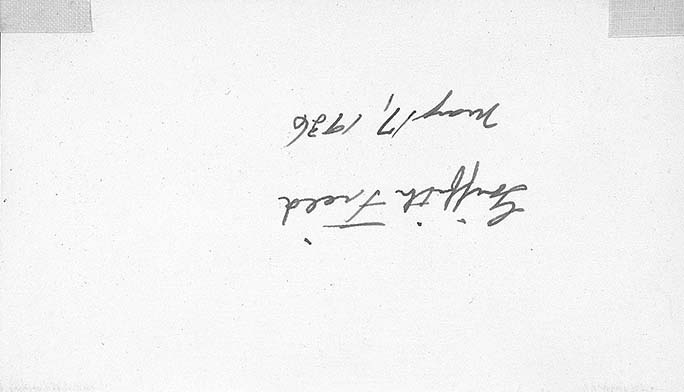 Griffith Field
May 17, 1926